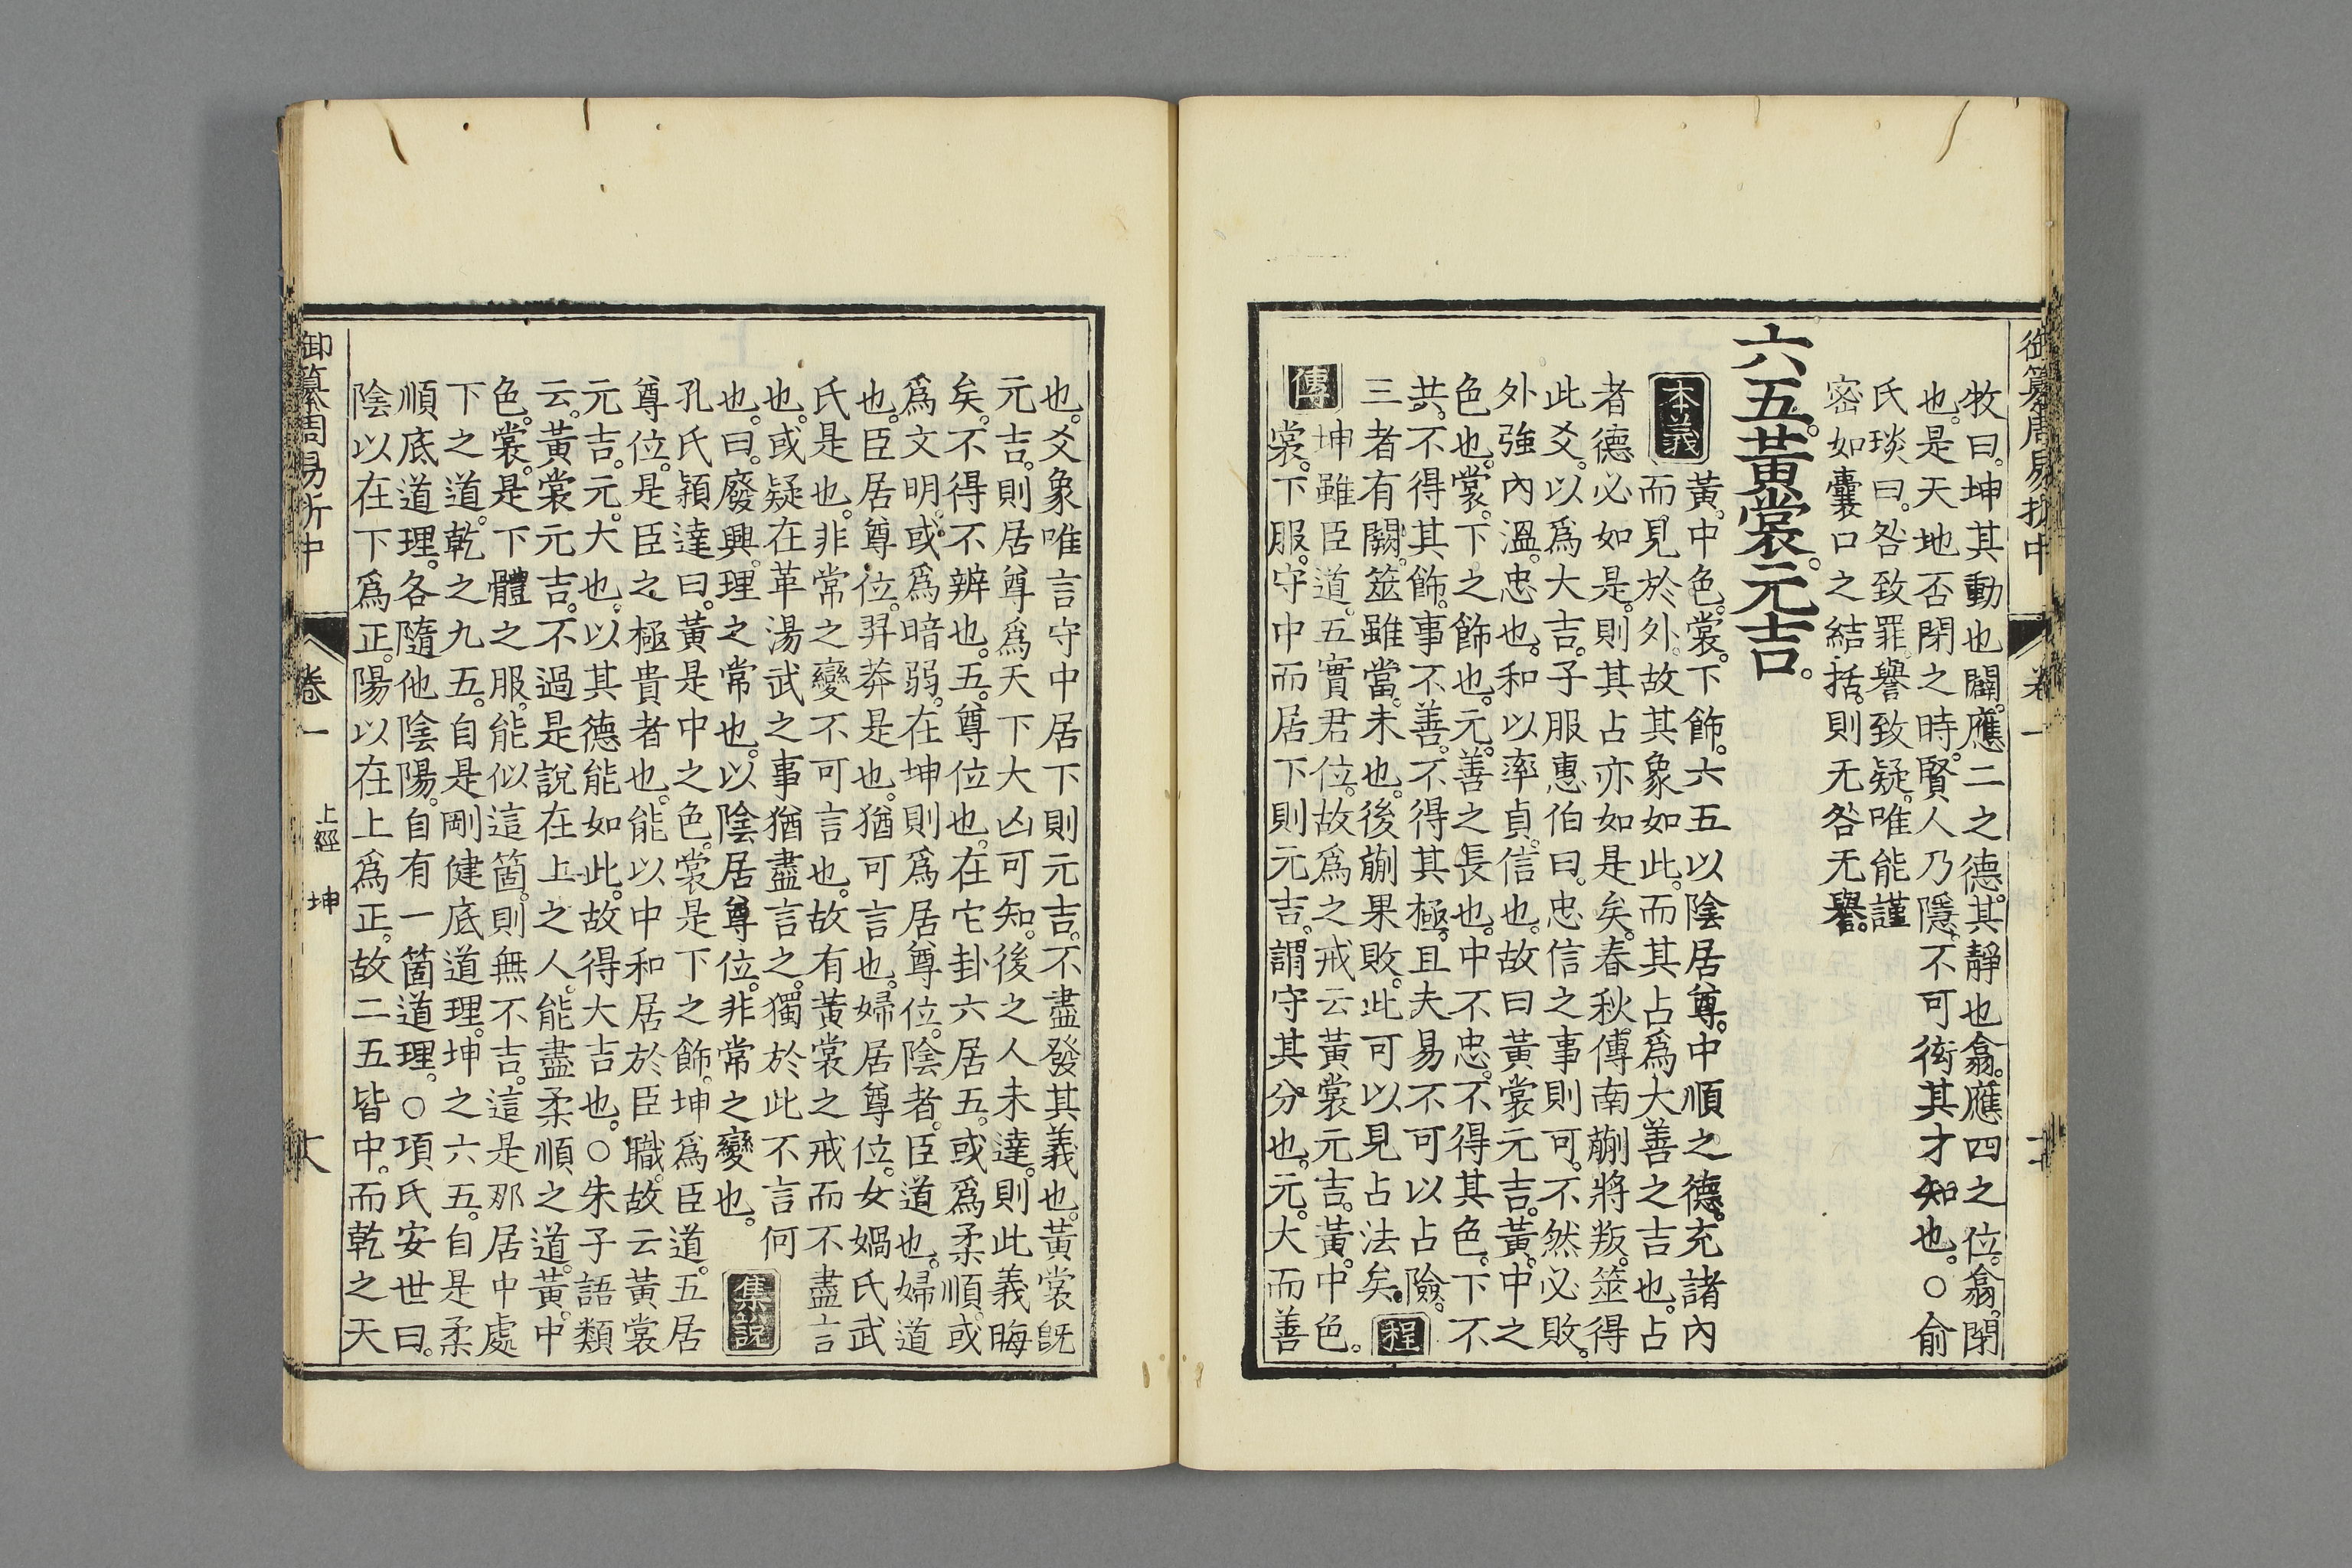 牧曰。坤其動也闢。應二之德。其靜也翕。應四之位。翕。閉
也。是天地否閉之時。賢人乃隱。不可衒其才知也。○俞
氏琰曰。咎致罪。譽致疑。唯能謹
密如囊口之結括。則无咎无譽。
六五。黃裳。元吉。
本義
黃。中色。裳。下飾。六五以陰居尊。中順之德。充諸內
而見於外。故其象如此。而其占爲大善之吉也。占
者德必如是。則其占亦如是矣。春秋傳南蒯將叛。筮得
此爻。以爲大吉。子服惠伯曰。忠信之事則可。不然必敗。
外強內溫。忠也。和以率貞。信也。故曰黃裳元吉。黃。中之
色也。裳。下之飾也。元。善之長也。中不忠。不得其色。下不
共。不得其飾。事不善。不得其極。且夫易不可以占險。
三者有闕。筮雖當。未也。後蒯果敗。此可以見占法矣。程
傳
坤雖臣道。五實君位。故爲之戒云黃裳元吉。黃。中色。
裳。下服。守中而居下則元吉。謂守其分也。元。大而善
也。爻象唯言守中居下則元吉。不盡發其義也。黃裳旣
元吉。則居尊爲天下大凶可知。後之人未達。則此義晦
矣。不得不辨也。五。尊位也。在它卦六居五。或爲柔順。或
爲文明。或爲暗弱。在坤則爲居尊位。陰者。臣道也。婦道
也。臣居尊位。羿莽是也。猶可言也。婦居尊位。女媧氏武
氏是也。非常之變不可言也。故有黃裳之戒而不盡言
也。或疑在革湯武之事猶盡言之。獨於此不言何
也。曰。廢興。理之常也。以陰居尊位。非常之變也。集說
孔氏穎達曰。黃是中之色。裳是下之飾。坤爲臣道。五居
尊位。是臣之極貴者也。能以中和居於臣職。故云黃裳
元吉。元。大也。以其德能如此。故得大吉也。○朱子語類
云。黃裳元吉。不過是說在上之人。能盡柔順之道。黃。中
色。裳。是下體之服。能似這箇。則無不吉。這是那居中處
下之道。乾之九五。自是剛健底道理。坤之六五。自是柔
順底道理。各隨他陰陽。自有一箇道理。○項氏安世曰。
陰以在下爲正。陽以在上爲正。故二五皆中。而乾之天
御纂周易折中
卷一
上經
坤